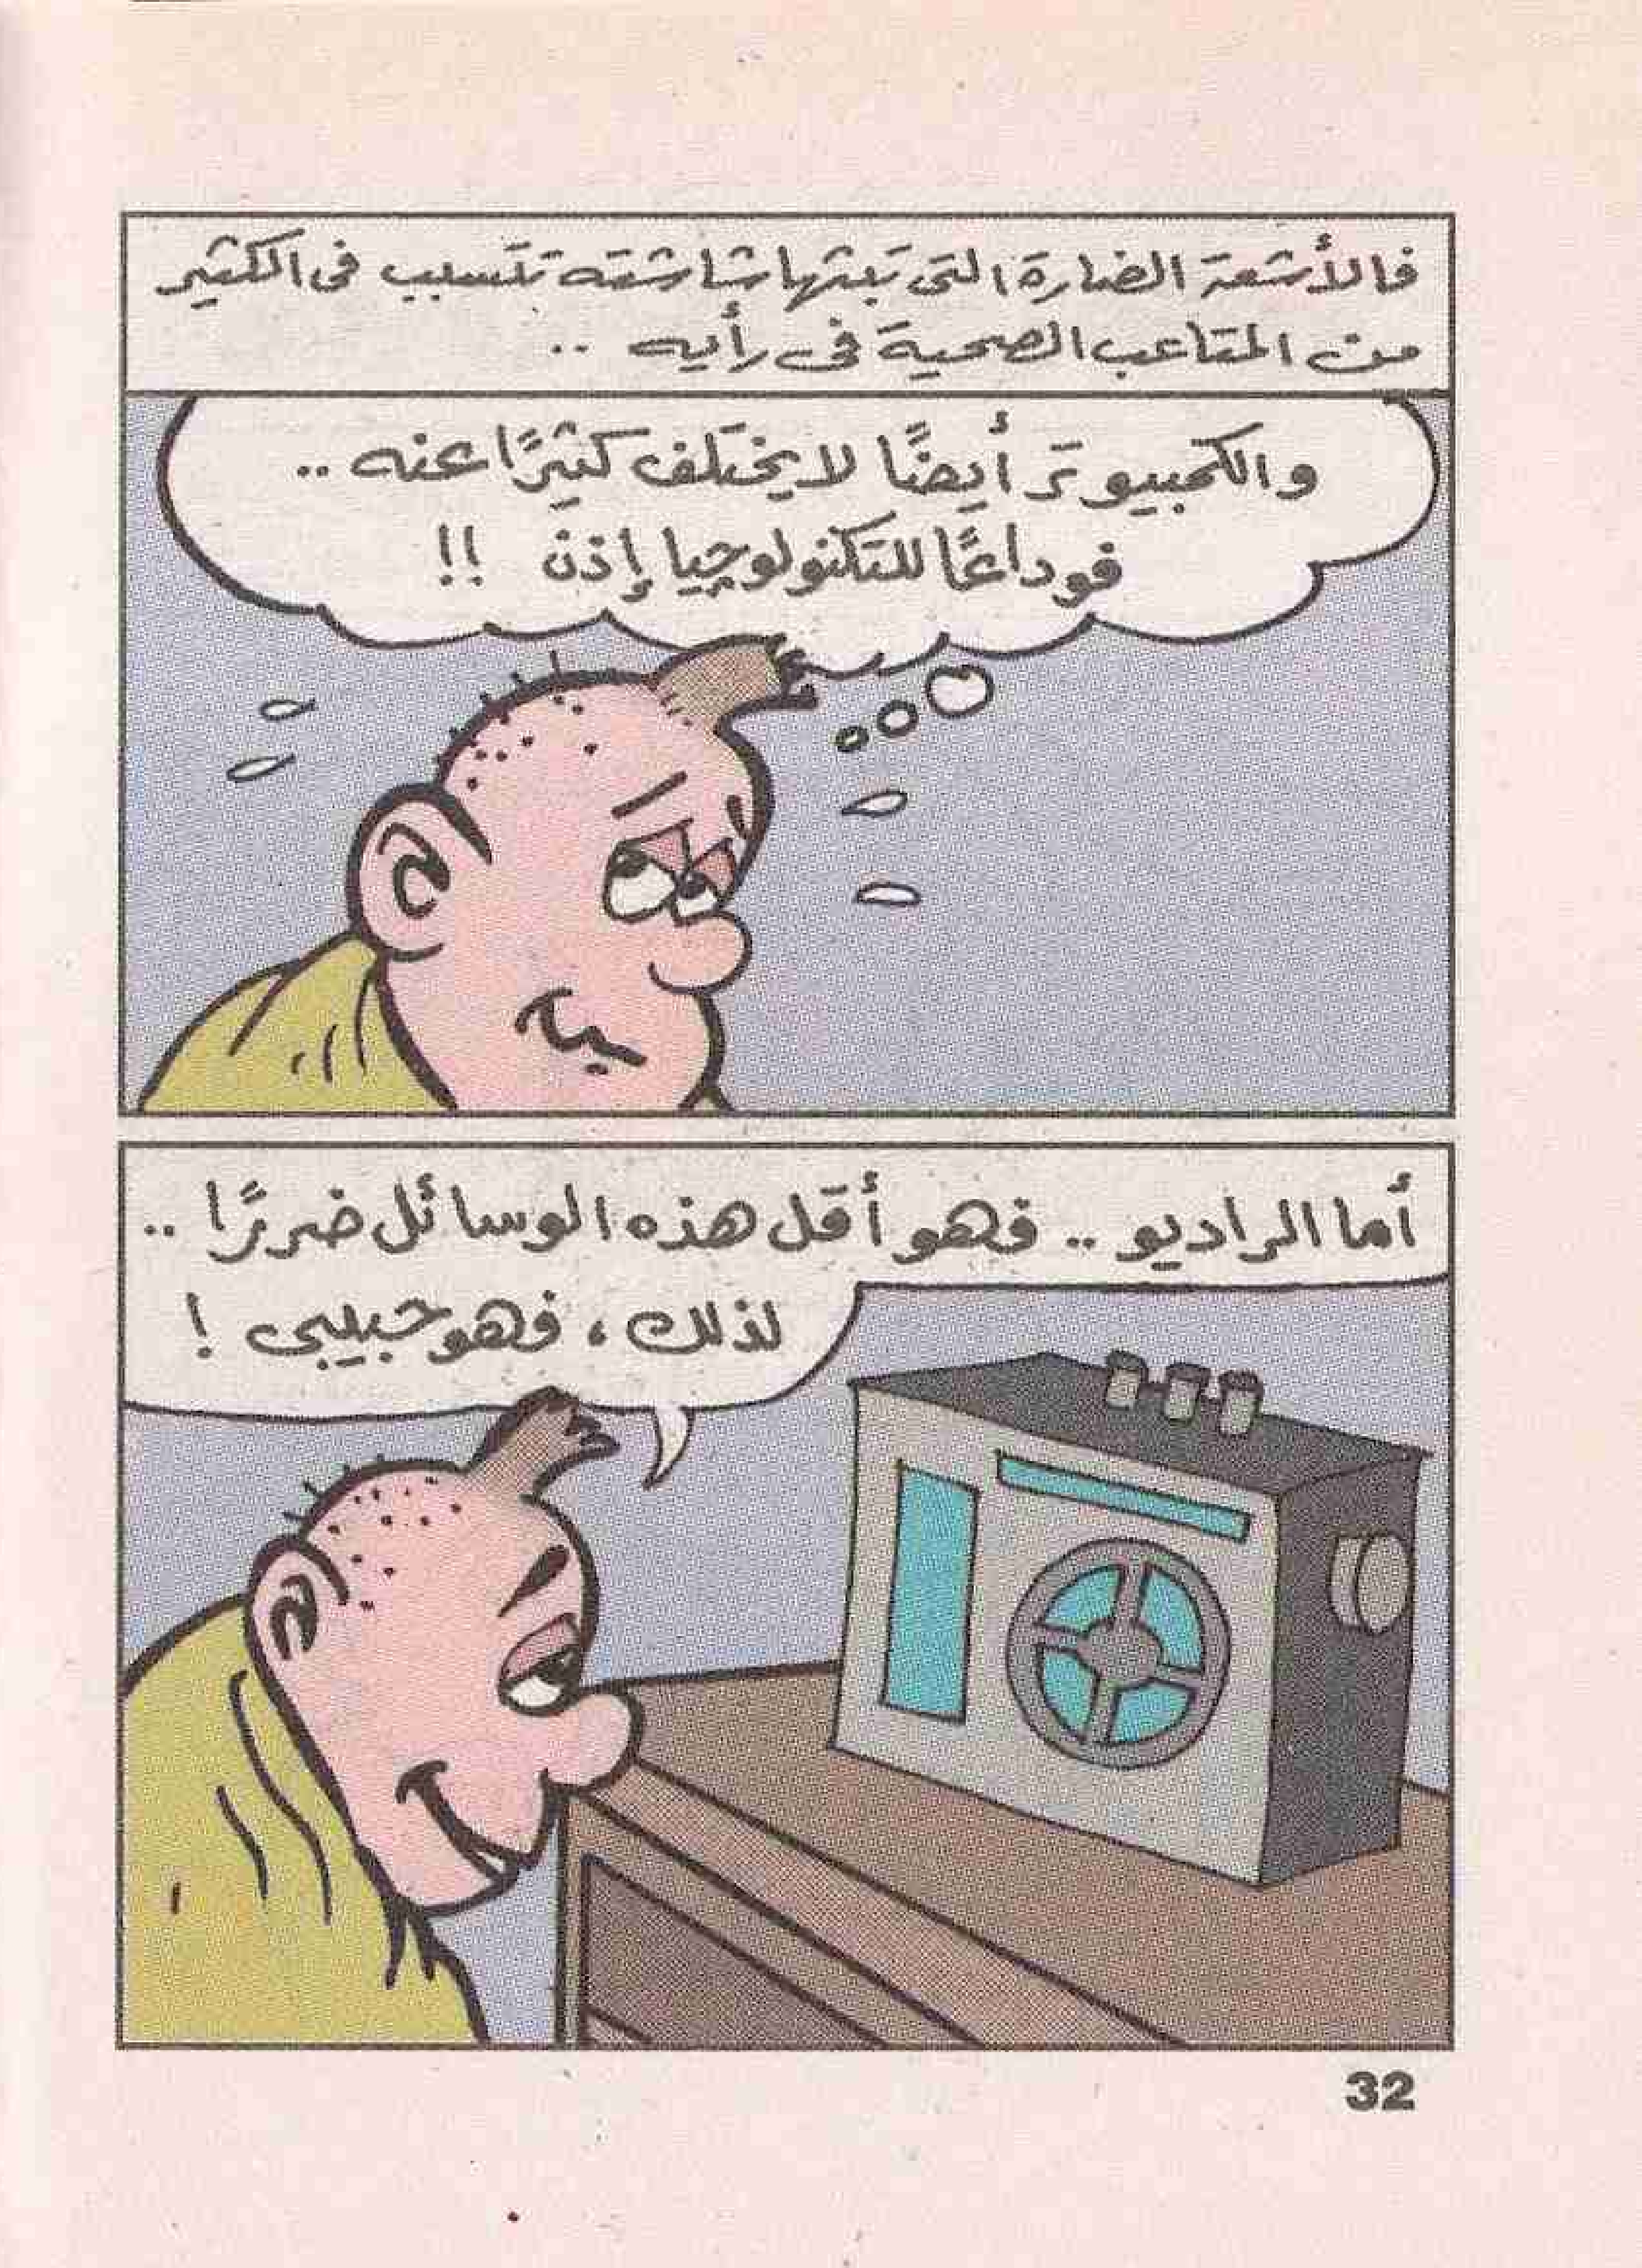 فالأشعة الضارة التى تبثها شاشته تتسبب فى الكثير
من المتاعب الصحية فى رأيه ..
والكمبيوتر أيضًا لا يختلف كثيرًا عنه ..
فوداعًا للتكنولوچيا إذن !!
أما الراديو .. فهو أقل هذه الوسائل ضررًا ..
لذلك ، فهو حبيبى !
32